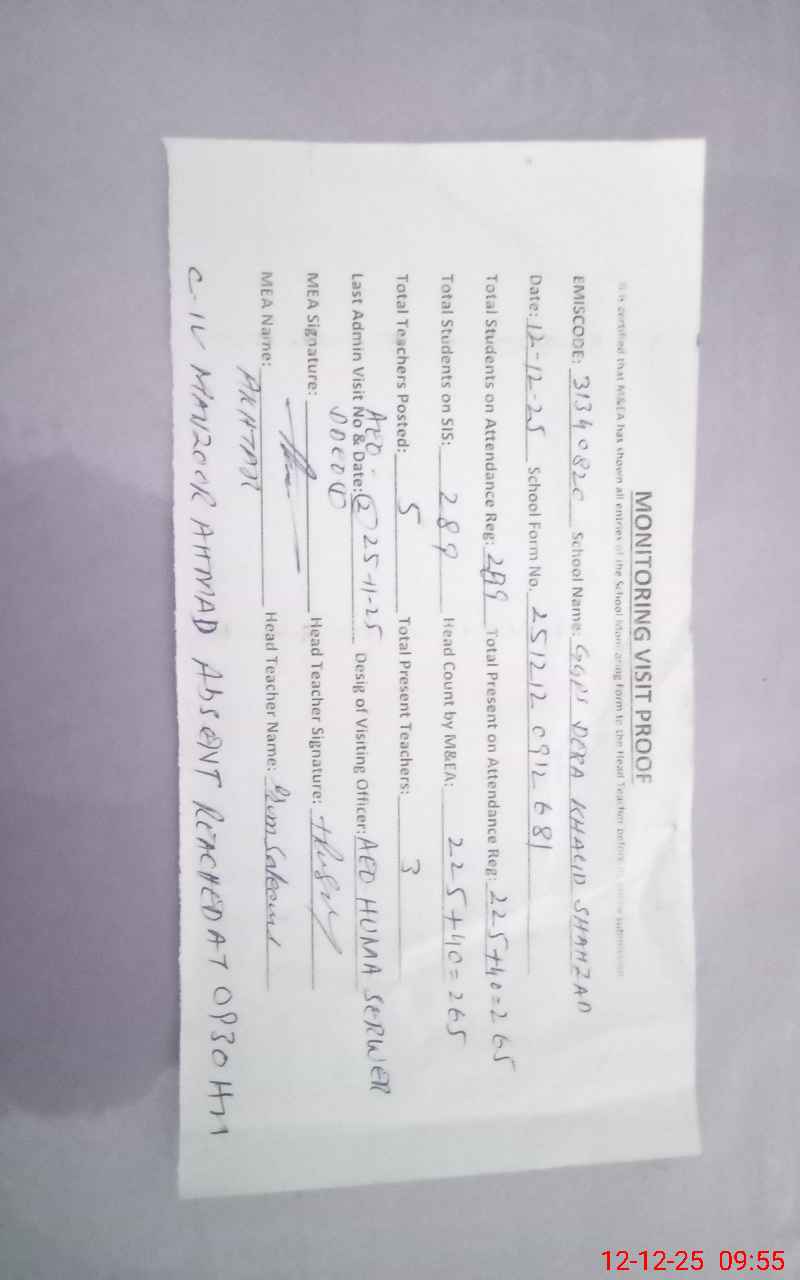 MONITORING VISIT PROOF
It is certified that M&EA has shown all entries of the School Monitoring Form to the Head Teacher before its online submission
EMISCODE: 31340820 School Name: GGPS DERA KHALID SHAHZAD
Date: 12-12-25 School Form No. 251212 0912 681
Total Students on Attendance Reg: 289 Total Present on Attendance Reg: 225+40=265
Total Students on SIS: 289 Head Count by M&EA: 225+40=265
Total Teachers Posted: 5 Total Present Teachers: 3
AEO-
Last Admin Visit No & Date: (2) 25-11-25 Desig of Visiting Officer: AEO HUMA SERWER
DDEO (1)
MEA Signature: Head Teacher Signature:
MEA Name: AKHTAR Head Teacher Name:
C-IV MANZOOR AHMAD AbSENT REACHED AT 0930 Hrs
12-12-25 09:55